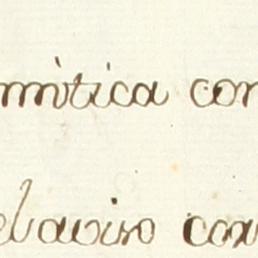 mìtica con
el aviso con